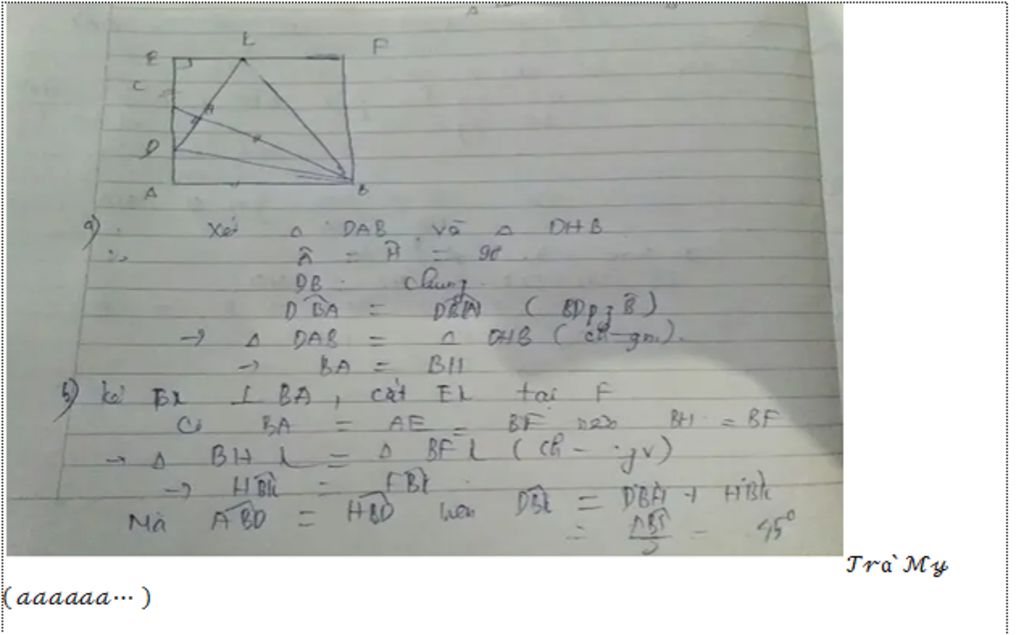 E L F
C
H
D
A B
a) Xét △ DAB và △ DHB
Â = Ĥ = 90
DB chung
DB̂A = DB̂H ( BD pg B̂ )
→ △ DAB = △ DHB ( ch-gn ).
→ BA = BH
b) kẻ Bx ⊥ BA, cắt EL tại F
Có BA = AE = BF nên BH = BF
→ △ BHL = △ BFL ( ch - gv )
→ HB̂k = FB̂k
Mà AB̂D = HB̂D nên DB̂k = DB̂H + HB̂k
= = 45°
Trà My
(aaaaaa… )